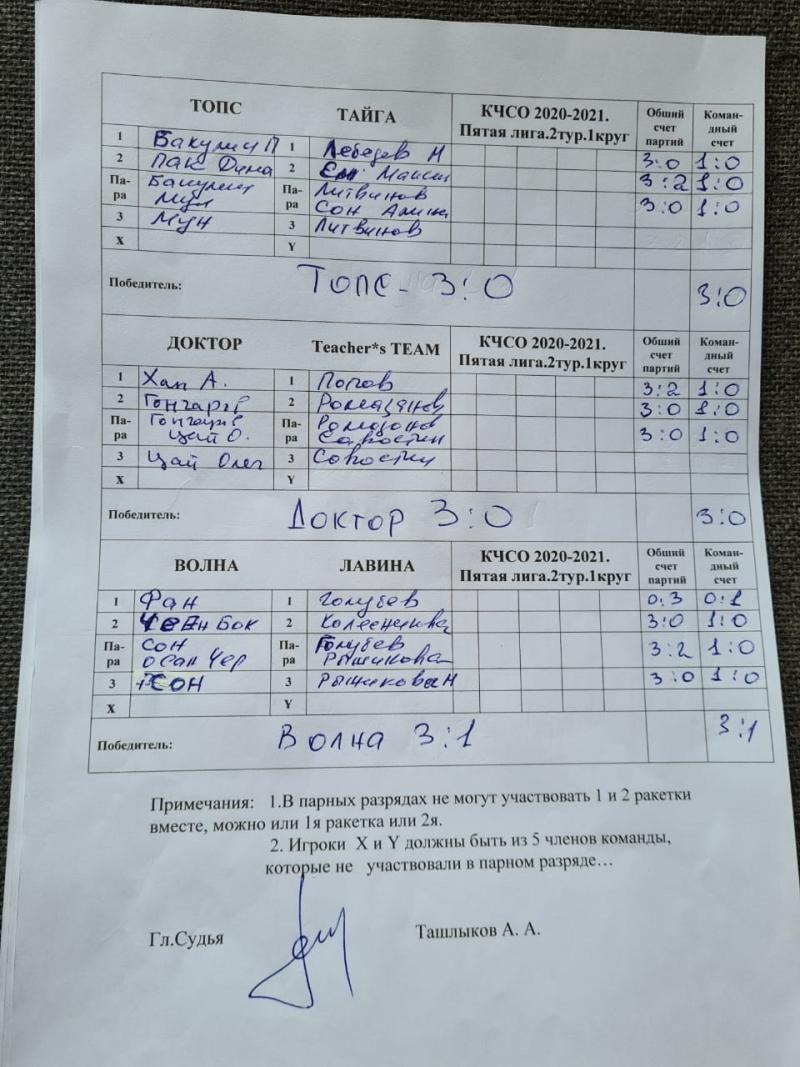 ТОПС ТАЙГА КЧСО 2020-2021. Пятая лига.2тур.1круг Обший счет партий Коман-дный счет
1 Бакулин П 1 Лебедев Н 3:0 1:0
2 Пак Дима 2 Максим 3:2 1:0
Па-ра Бакулин Мун Па-ра Литвинов Сон Алина 3:0 1:0
3 Мун 3 Литвинов
X Y
Победитель: Топс - 3:0 3:0
ДОКТОР Teacher*s TEAM КЧСО 2020-2021. Пятая лига.2тур.1круг Обший счет партий Коман-дный счет
1 Хан А. 1 Попов 3:2 1:0
2 Гончаров 2 Ромазанов 3:0 1:0
Па-ра Гончаров Цай О. Па-ра Ромазанов Савостин 3:0 1:0
3 Цай Олег 3 Совостин
X Y
Победитель: Доктор 3:0 3:0
ВОЛНА ЛАВИНА КЧСО 2020-2021. Пятая лига.2тур.1круг Обший счет партий Коман-дный счет
1 Фан 1 Голубев 0:3 0:1
2 Бок 2 Колесникова 3:0 1:0
Па-ра Сон Па-ра Голубев Рыжикова 3:2 1:0
3 Сон 3 Рыжикова Н 3:0 1:0
X Y
Победитель: Волна 3:1 3:1
Примечания: 1.В парных разрядах не могут участвовать 1 и 2 ракетки
вместе, можно или 1я ракетка или 2я.
2. Игроки X и Y должны быть из 5 членов команды,
которые не участвовали в парном разряде…
Гл.Судья Ташлыков А. А.